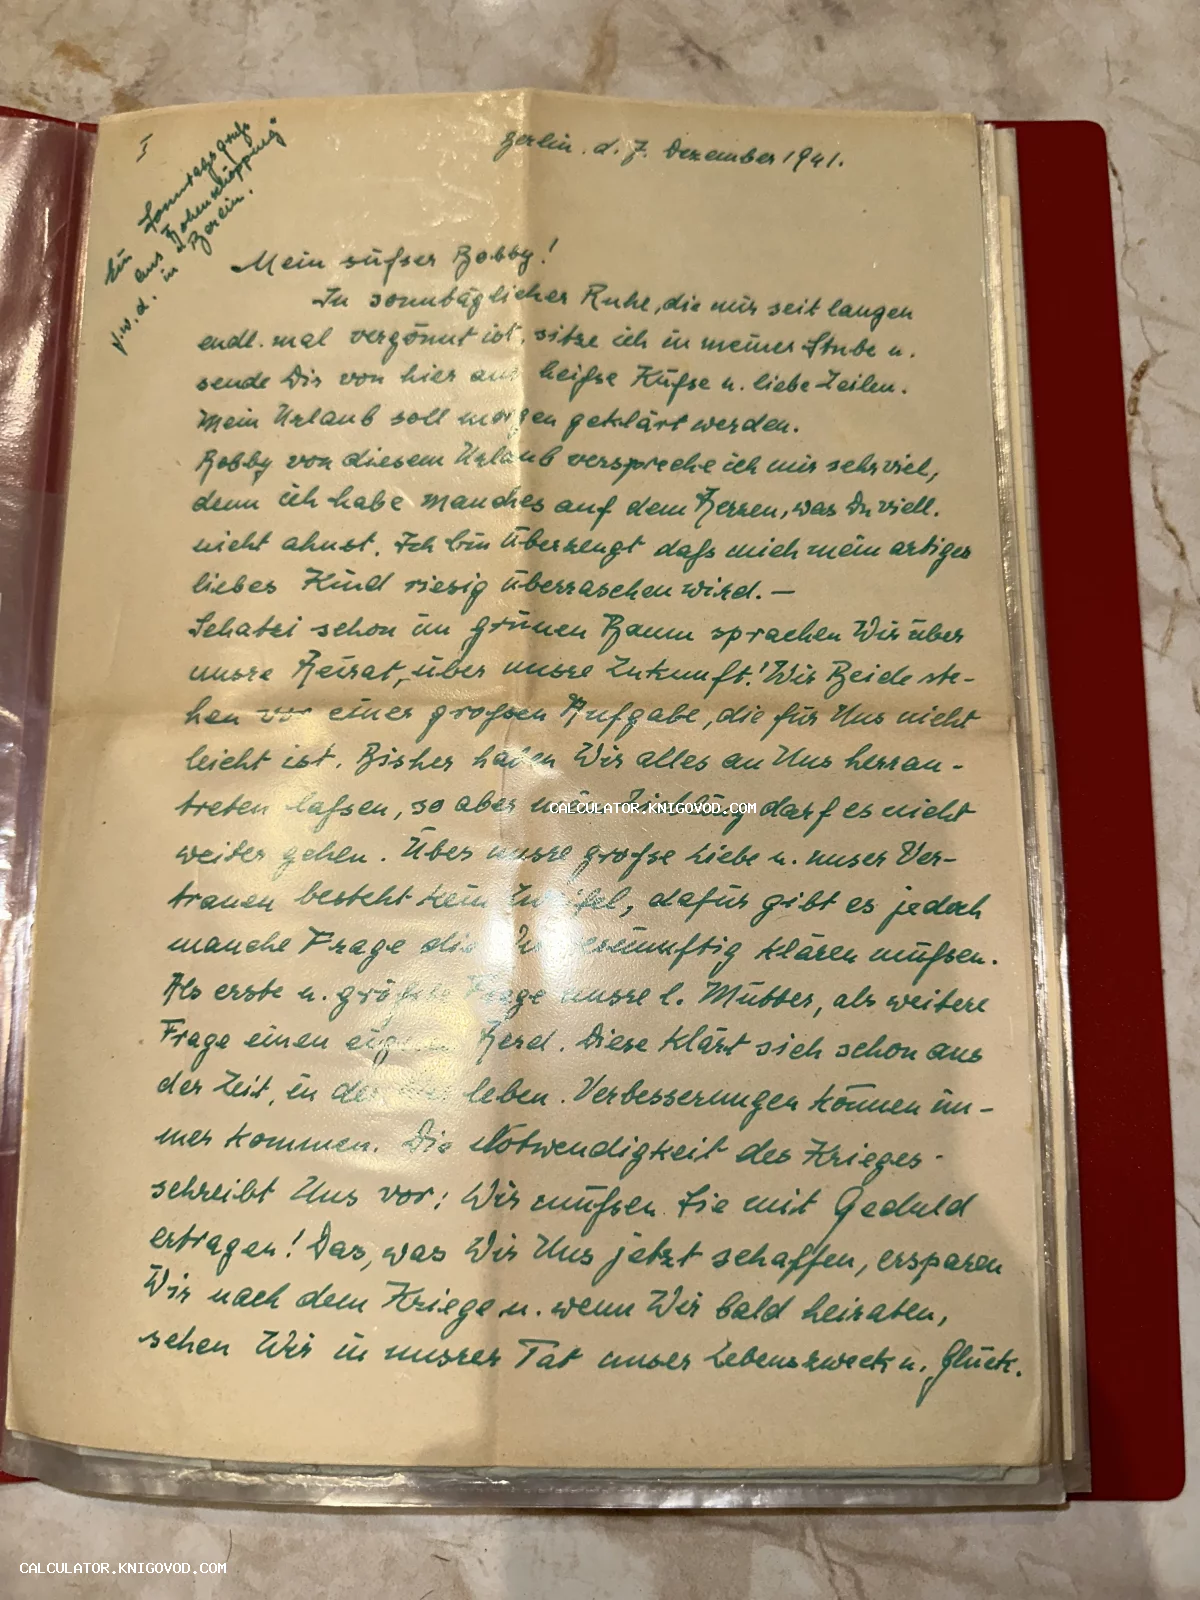 I
Ein Sonntagsgruß
aus Hohenschöpping
v.w.d. in Berlin.
Berlin. d. 7. Dezember 1941.
Mein süßer Bobby!
In sonntäglicher Ruhe, die mir seit langen
endl. mal vergönnt ist, sitze ich in meiner Stube u.
sende Dir von hier aus heiße Küße u. liebe Zeilen.
Mein Urlaub soll morgen geklärt werden.
Bobby von diesem Urlaub verspreche ich mir sehr viel,
denn ich habe manches auf dem Herzen, was Du viell.
nicht ahnst. Ich bin überzeugt daß mich mein artiges
liebes Kind riesig überraschen wird. —
Schatzi schon im grünen Baum sprachen Wir über
unsre Heirat, über unsre Zukunft! Wir Beide ste-
hen vor einer großen Aufgabe, die für Uns nicht
leicht ist. Bisher haben Wir alles an Uns herran-
treten laßen, so aber mein Liebling darf es nicht
weiter gehen. Über unsre große Liebe u. unser Ver-
trauen besteht kein Zweifel, dafür gibt es jedoch
manche Frage die Wir vernünftig klären müßen.
Als erste u. größte Frage unsre l. Mütter, als weitere
Frage einen eigenen Herd. Diese klärt sich schon aus
der Zeit, in der Wir leben. Verbesserungen können im-
mer kommen. Die Notwendigkeit des Krieges
schreibt Uns vor: Wir müßen Sie mit Geduld
ertragen! Das, was Wir Uns jetzt schaffen, ersparen
Wir nach dem Kriege u. wenn Wir bald heiraten,
sehen Wir in unsrer Tat unser Lebenszweck u. Glück.
CALCULATOR.KNIGOVOD.COM
CALCULATOR.KNIGOVOD.COM